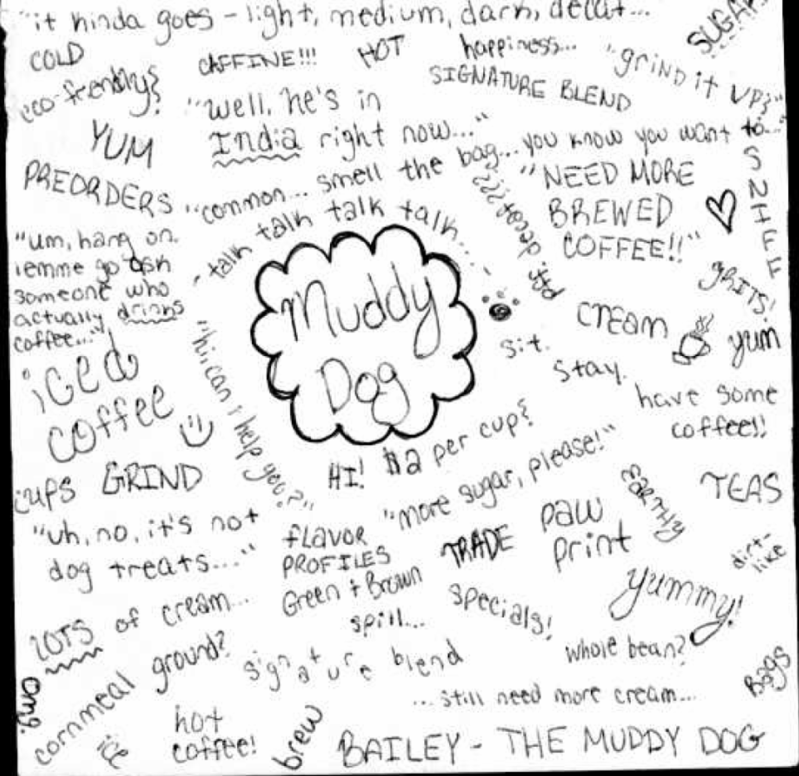 "it kinda goes - light, medium, dark, decaf...
SUGAR
COLD
CAFFINE!!!
HOT
happiness...
"grind it up?"
eco-friendly?
SIGNATURE BLEND
"well, he's in
India right now..."
YUM
"common... smell the bag... you know you want to..."
SNIFF
PREORDERS
"NEED MORE
BREWED
COFFEE!!"
- talk talk talk talk... -
ppft. decaf???
"um, hang on.
lemme go ask
someone who
actually drinks
coffee..."
GRITS!
Muddy
Dog
CREAM
yum
sit.
stay.
iced
coffee
"hi, can i help you?"
have some
coffee!!
HI! $2 per cup?
cups
GRIND
"more sugar, please!"
EARTHY
TEAS
"uh, no, it's not
dog treats..."
flavor
PROFILES
TRADE
paw
print
dirt-
like
Green + Brown
LOTS of cream...
spill...
specials!
yummy!
ground?
signature blend
whole bean?
Bags
omg.
cornmeal
...still need more cream...
ice
hot
coffee!
brew
BAILEY - THE MUDDY DOG